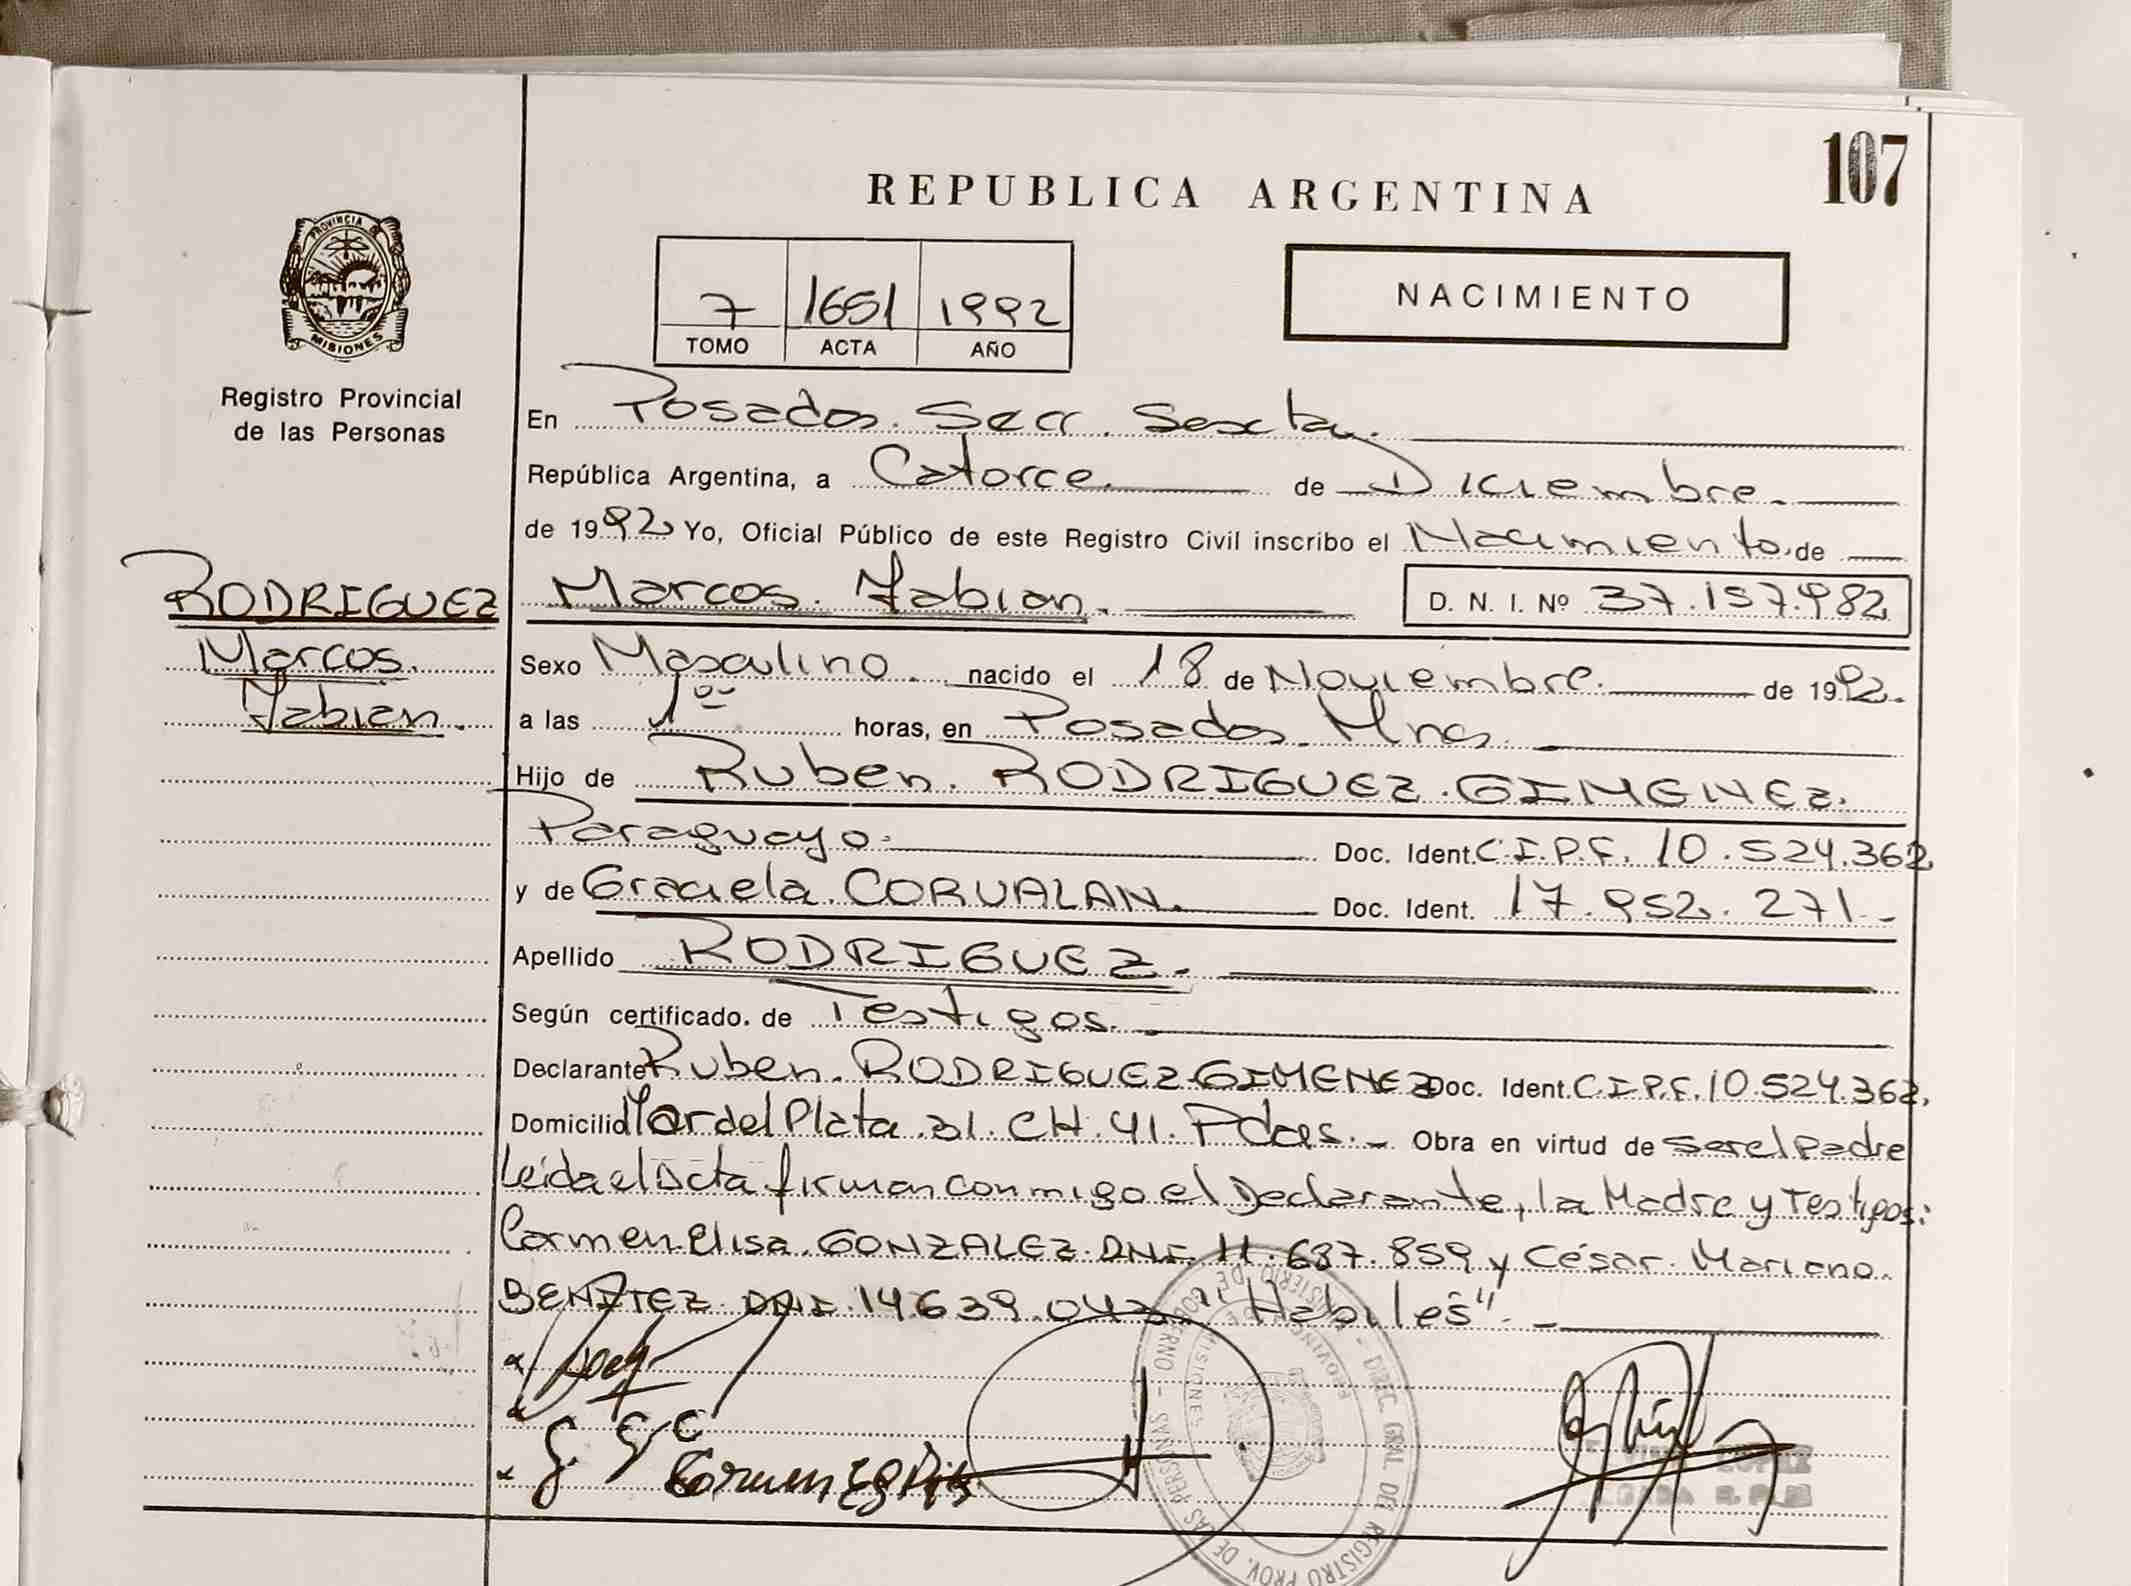 107
REPUBLICA ARGENTINA
PROVINCIA DE
MISIONES
7 1651 1992
TOMO ACTA AÑO
NACIMIENTO
Registro Provincial
de las Personas
En Posadas. Secc. Sexta.
República Argentina, a Catorce. de Diciembre.
de 1992 Yo, Oficial Público de este Registro Civil inscribo el Nacimiento. de
RODRIGUEZ
Marcos.
Fabian.
Marcos. Fabian. D. N. I. Nº 37.157.982
Sexo Masculino nacido el 18 de Noviembre. de 1992.
a las 1º horas, en Posadas Mnes.
Hijo de Ruben. RODRIGUEZ. GIMENEZ.
Paraguayo. Doc. Ident. C.I.P.F. 10.524.362
y de Graciela. CORVALAN. Doc. Ident. 17.952.271-
Apellido RODRIGUEZ.
Según certificado. de Testigos.
Declarante Ruben. RODRIGUEZ. GIMENEZ Doc. Ident. C.I.P.F. 10.524.362,
Domicilio Mar del Plata. 31. CH. 41. Pdas. - Obra en virtud de ser el Padre
Leída el Acta firman conmigo el Declarante, la Madre y Testigos:
Carmen Elisa. GONZALEZ. DNI. 11.687.859 y César. Mariano.
BENITEZ. DNI. 14.639.043 "Habiles". -
MINISTERIO DE GOBERNO - DIREC. GRAL. DEL REGISTRO PROV. DE LAS PERSONAS -
PROVINCIA DE MISIONES